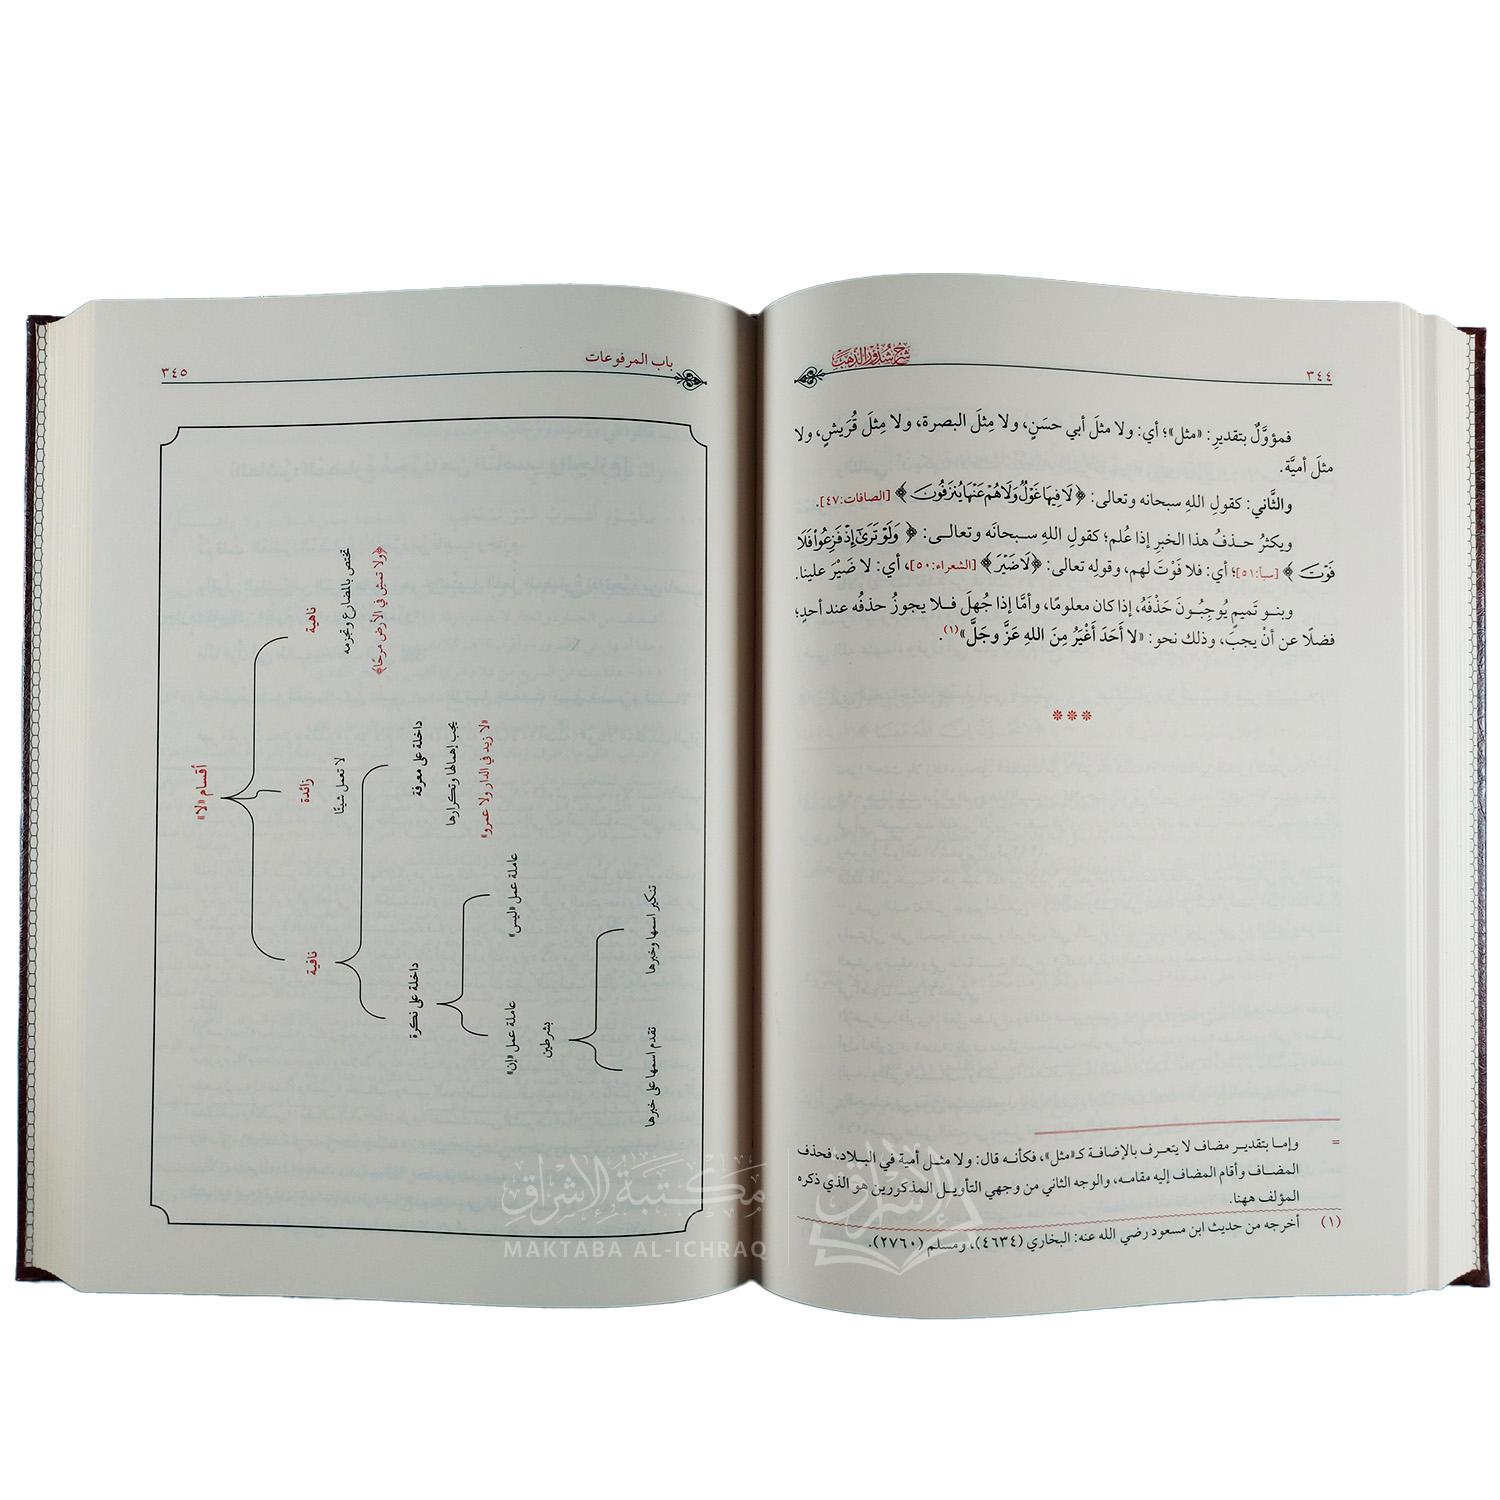 شرح شذور الذهب
٣٤٤
فمؤوَّلٌ بتقديرِ: «مثل»؛ أي: ولا مثلَ أبي حسَنٍ، ولا مِثلَ البصرة، ولا مِثلَ قُريشٍ، ولا
مثلَ أميَّة.
والثَّاني: كقولِ اللهِ سبحانه وتعالى: ﴿لَا فِيهَا غَوْلٌ وَلَا هُمْ عَنْهَا يُنزَفُونَ﴾ [الصافات:٤٧].
ويكثرُ حذفُ هذا الخبرِ إذا عُلم؛ كقولِ اللهِ سبحانَه وتعالى: ﴿وَلَوْ تَرَىٰ إِذْ فَزِعُوا۟ فَلَا
فَوْتَ﴾ [سبأ:٥١]؛ أي: فلا فَوْتَ لهم، وقولِه تعالى: ﴿لَا ضَيْرَ﴾ [الشعراء:٥٠]، أي: لا ضَيْرَ علينا.
وبنو تَميمٍ يُوجِبُونَ حَذْفَهُ، إذا كان معلومًا، وأمَّا إذا جُهلَ فلا يجوزُ حذفُه عند أحدٍ؛
فضلًا عن أنْ يجبَ، وذلك نحو: «لا أَحَدَ أَغْيَرُ مِنَ اللهِ عَزَّ وجَلَّ»(١).
***
= وإما بتقدير مضاف لا يتعرف بالإضافة كـ«مثل»، فكأنه قال: ولا مثل أمية في البلاد، فحذف
المضاف وأقام المضاف إليه مقامه، والوجه الثاني من وجهي التأويل المذكورين هو الذي ذكره
المؤلف ههنا.
(١) أخرجه من حديث ابن مسعود رضي الله عنه: البخاري (٤٦٣٤)، ومسلم (٢٧٦٠).
باب المرفوعات
٣٤٥
أقسام «لا»
ناهية
زائدة
نافية
تختص بالمضارع وتجزمه
لا تعمل شيئًا
﴿ولا تمش في الأرض مرحًا﴾
داخلة على معرفة
داخلة على نكرة
يجب إهمالها وتكرارها
«لا زيد في الدار ولا عمرو»
عاملة عمل «ليس»
عاملة عمل «إن»
بشرطين
تنكير اسمها وخبرها
تقدم اسمها على خبرها
مكتبة الإشراق
MAKTABA AL-ICHRAQ
الإشراق